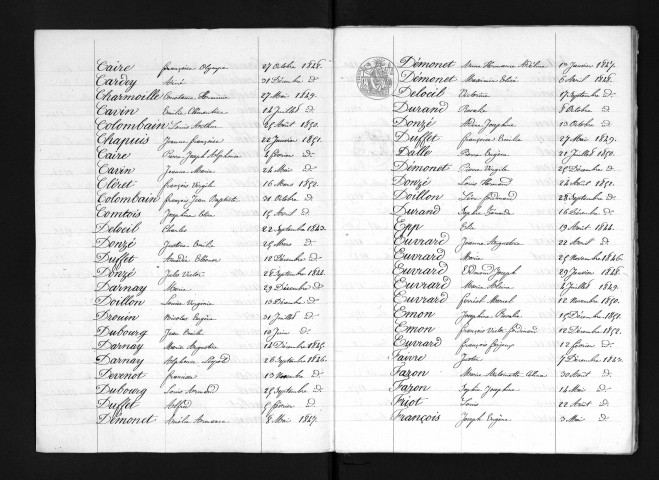 Caire françoise Olympe 27 Octobre 1848.
Cardey Aimé 31 Décembre do
Charmoille Constance Herminie 27 Mai 1849.
Cavin Emilie Clémentine 14 Juillet do
Colombain Louis Arthur 25 Août 1850.
Chapuis Jeanne françoise 22 Janvier 1851.
Caire Pierre Joseph Alphonse 4 février do
Cavin Jeanne Marie 24 Mai do
Cléret françois Virgile 16 Mars 1852.
Colombain françois Jean Baptiste 31 Octobre do
Comtois Joséphine 15 Avril do
Deloeil Charles 22 Septembre 1843.
Donzé Justine Emilie 25 Mars do
Duffet Amédée 10 Décembre do
Donzé Jules Victor 28 Septembre 1844.
Darnay Marie 29 Décembre do
Doillon Louise Virginie 13 Décembre do
Drouin Nicolas Eugène 31 Juillet do
Dubourg Jean Emile 10 Juin do
Darnay Marie Augustine 14 Décembre 1845.
Darnay Alphonse Léopold 26 Septembre 1846.
Devenot 13 Novembre do
Dubourg Louis Armand 25 Septembre do
Duffet Alfred 5 février do
Démonet Amélie 8 Mai 1847.
Démonet Anne Hermance 10 Janvier 1847.
Démonet Maximin Elie 6 Avril 1848.
Deloeil Victorine 17 Septembre do
Durand Rosalie 8 Octobre do
Donzé Joséphine 13 Octobre do
Duffet françoise Emilie 27 Mai 1849.
Dalle Pierre Eugène 21 Juillet 1850.
Démonet Pierre Virgile 25 Décembre do
Donzé Louis 24 Août 1851.
Doillon Léon ferdinand 28 Septembre do
Durand Sophie 16 Décembre do
Epp Elie 19 Août 1844.
Euvrard Jeanne Augustine 22 Avril do
Euvrard Marie 25 Novembre 1846.
Euvrard Edmond Joseph 29 Janvier 1848.
Euvrard Marie 4 Juillet 1849.
Euvrard Marcel 12 Novembre 1850.
Emon Joséphine Rosalie 15 Décembre 1850.
Emon françois Victor ferdinand 12 Décembre 1852.
Euvrard françois 12 février do
Faivre Justin 7 Décembre 1843.
Fazon Marie Antoinette 30 Août do
Fazon Sophie Joséphine 14 Mai do
Friot Louis 22 Août do
François Joseph Eugène 3 Mai do